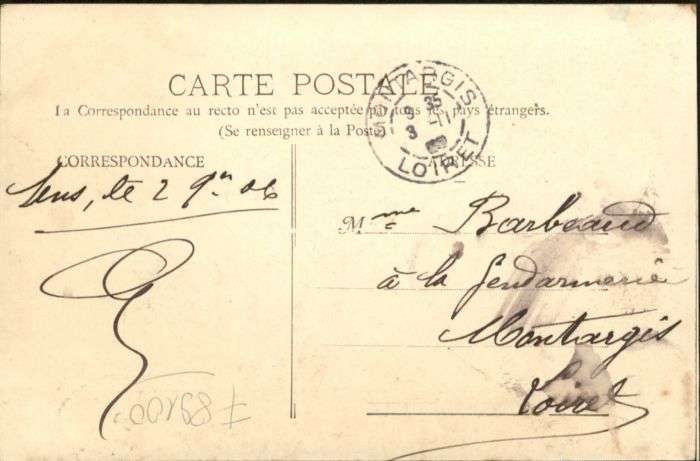 CARTE POSTALE
La Correspondance au recto n'est pas acceptée par tous les pays étrangers.
(Se renseigner à la Poste)
MONTARGIS
LOIRET
CORRESPONDANCE
Sens, le 2 9bre 06
89100
ADRESSE
Mme Barbeaud
à la Gendarmerie
Montargis
Loiret